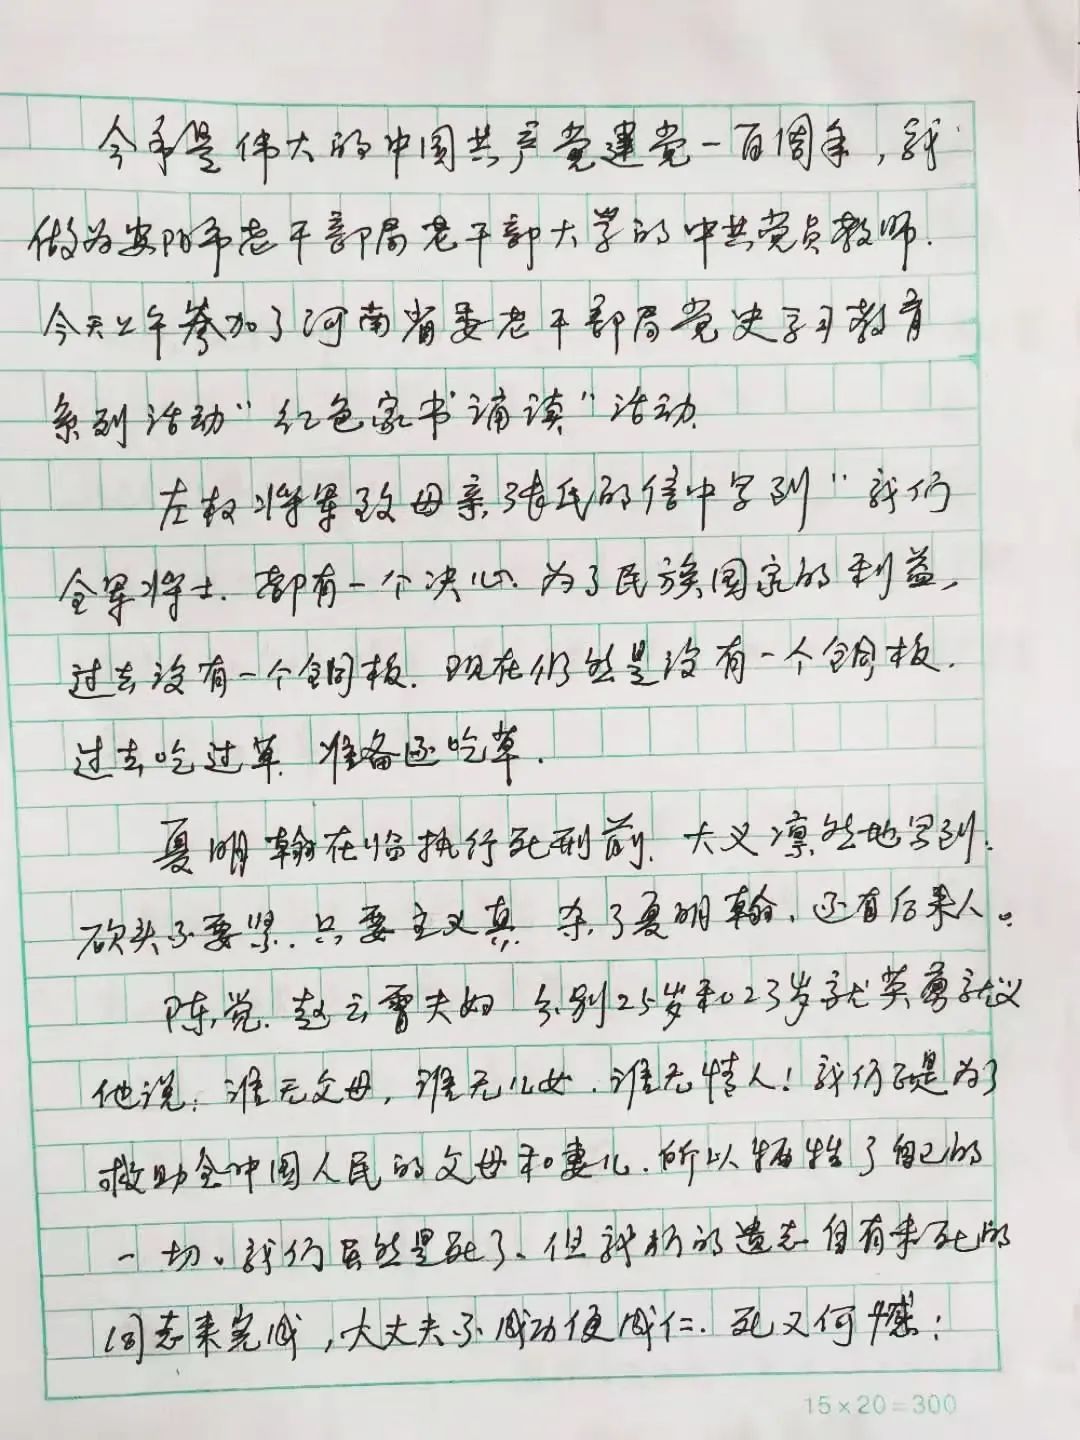 今年是伟大的中国共产党建党一百周年，我
做为安阳市老干部局老干部大学的中共党员教师.
今天上午参加了河南省委老干部局党史学习教育
系列活动"红色家书诵读"活动.
左权将军致母亲张氏的信中写到"我们
全军将士.都有一个决心.为了民族国家的利益,
过去没有一个铜板.现在仍然是没有一个铜板.
过去吃过草.准备还吃草.
夏明翰在临执行死刑前.大义凛然地写到.
砍头不要紧.只要主义真.杀了夏明翰.还有后来人。
陈觉.赵云霄夫妇分别25岁和23岁就英勇就义
他说:谁无父母,谁无儿女.谁无情人!我们正是为了
救助全中国人民的父母和妻儿.所以牺牲了自己的
一切。我们虽然是死了.但我们的遗志自有未死的
同志来完成,大丈夫不成功便成仁.死又何憾;
15×20=300